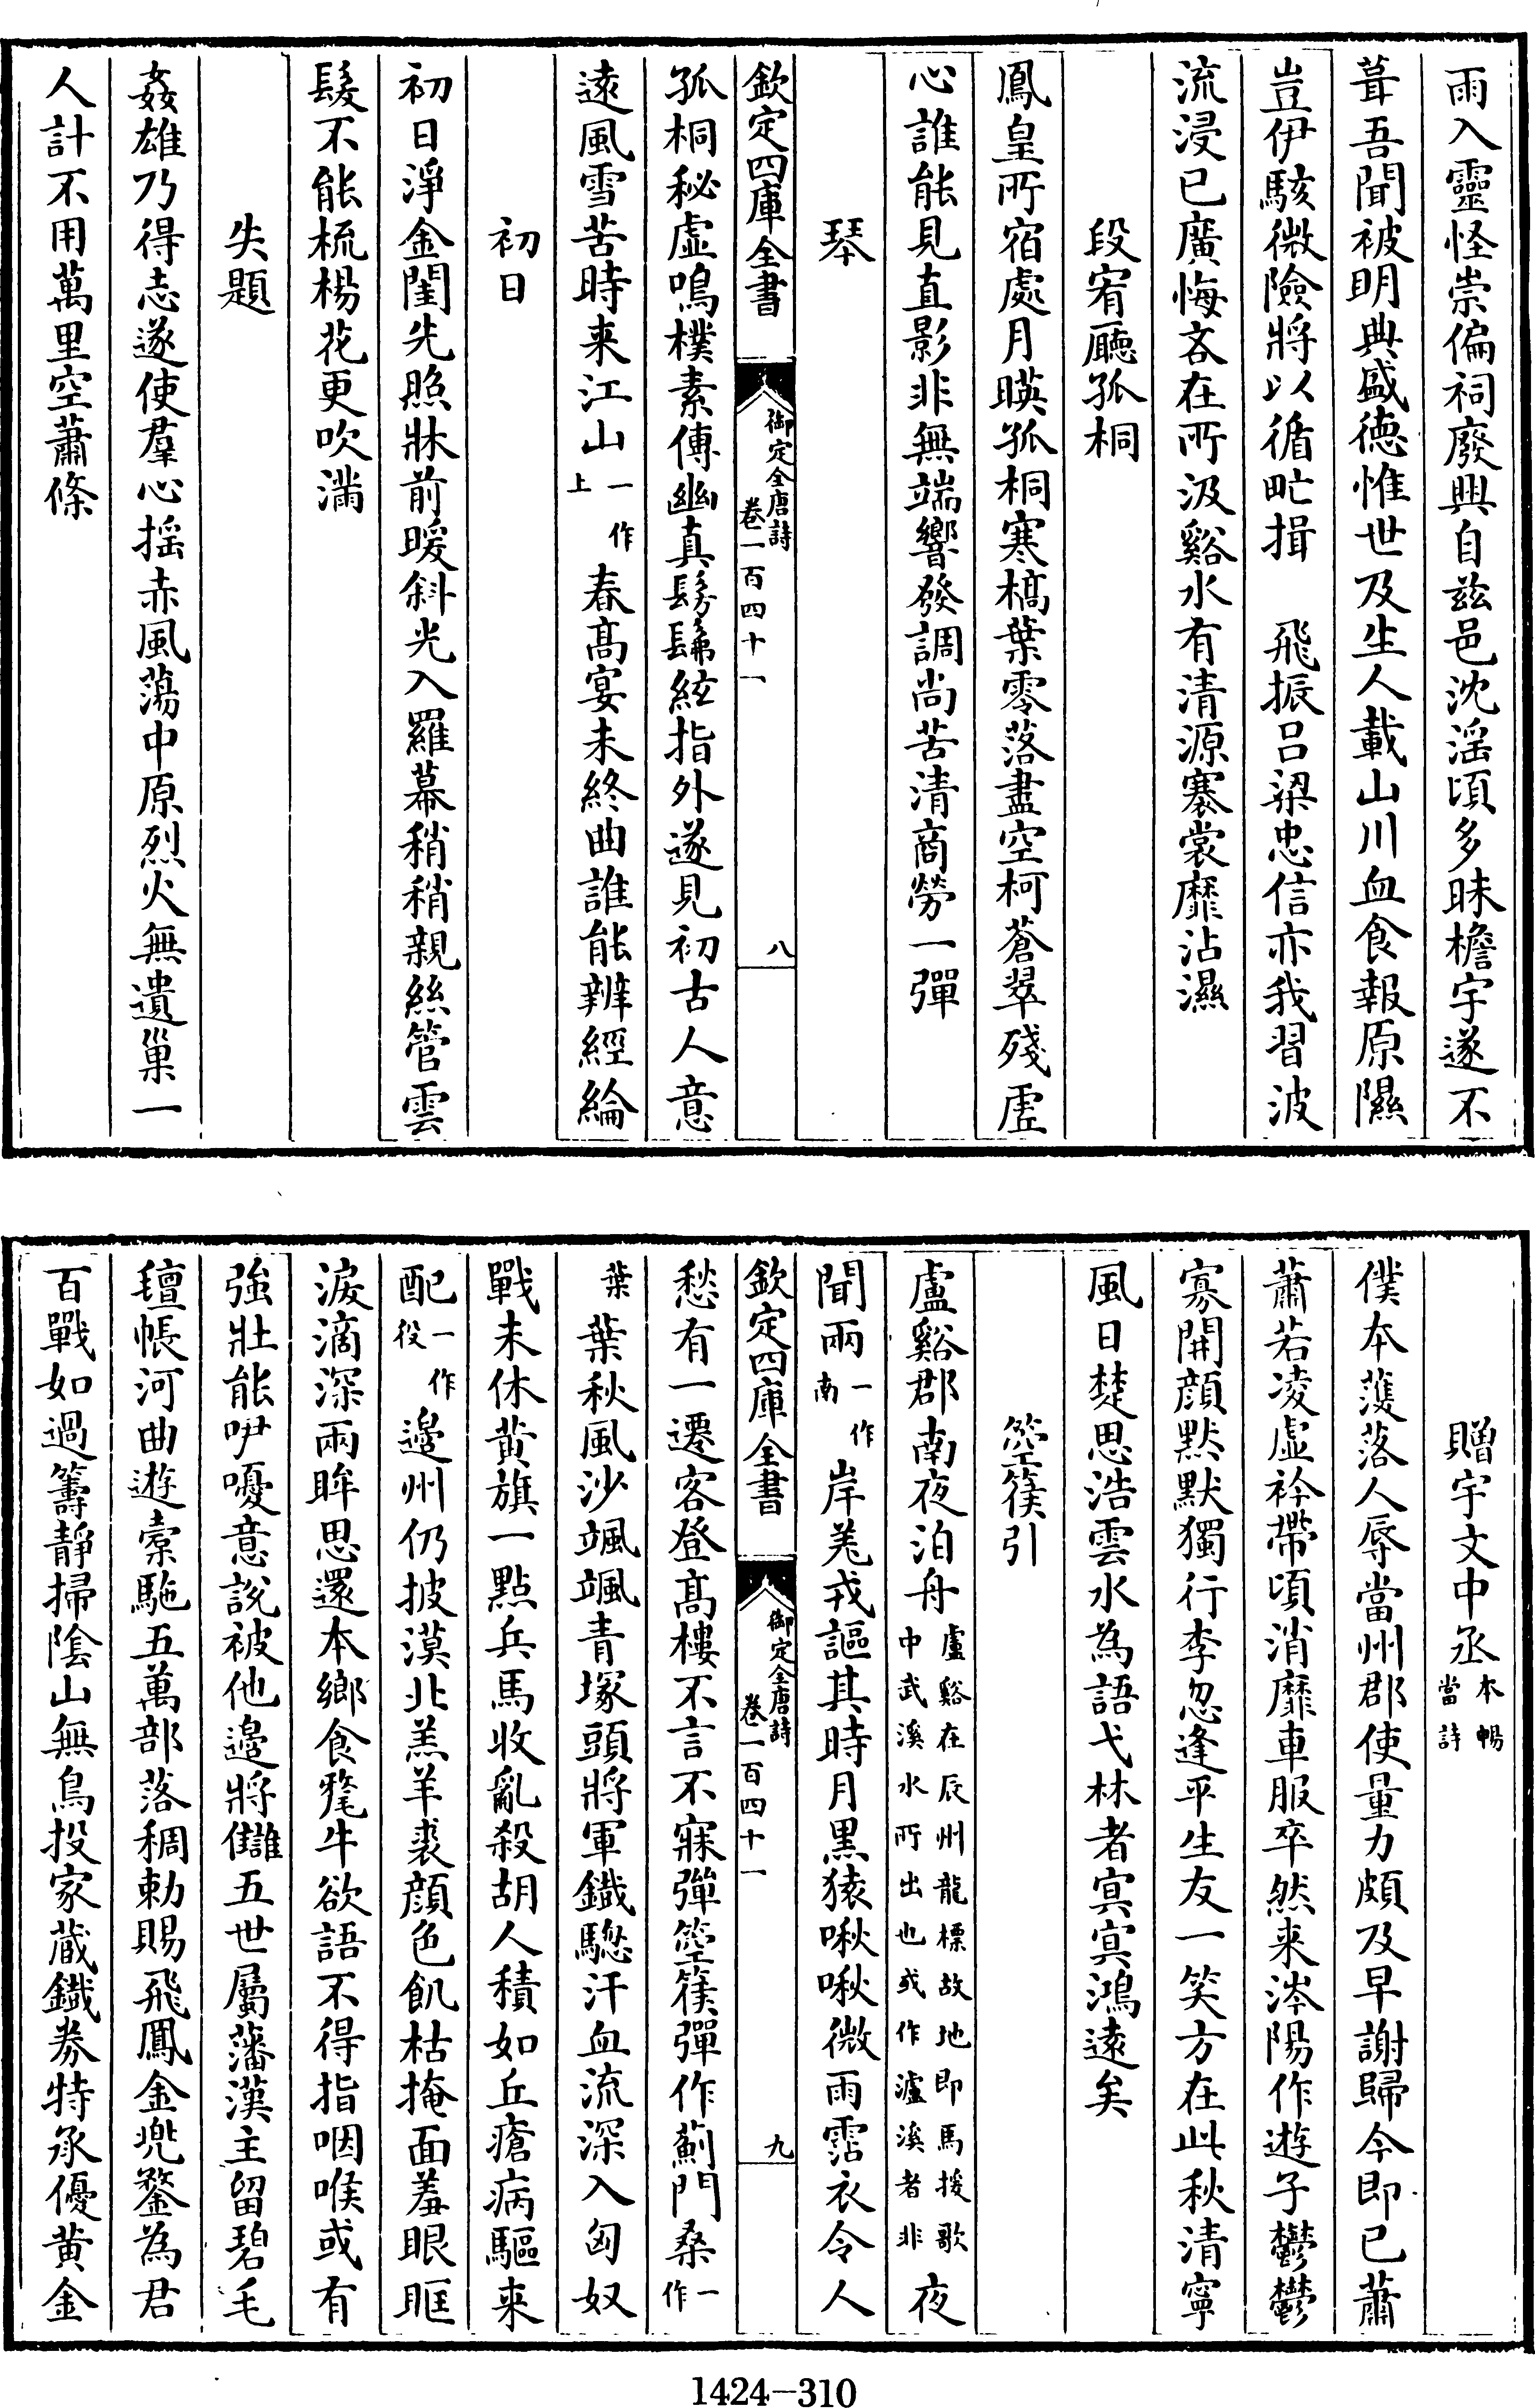 雨入靈怪崇偏祠廢興自茲邑沈淫頃多昧檐宇遂不
葺吾聞被明典盛德惟世及生人載山川血食報原隰
豈伊駭微險將以循甿揖　飛振呂梁忠信亦我習波
流浸已廣悔吝在所汲谿水有清源褰裳靡沾濕
段宥廳孤桐
鳳皇所宿處月暎孤桐寒槁葉零落盡空柯蒼翠殘虛
心誰能見直影非無端響發調尚苦清商勞一彈
琴
欽定四庫全書　御定全唐詩　卷一百四十一　八
孤桐秘虛鳴樸素傳幽真髣髴絃指外遂見初古人意
遠風雪苦時来江山一作上春高宴未終曲誰能辨經綸
初日
初日淨金閨先照牀前暖斜光入羅幕稍稍親絲管雲
髮不能梳楊花更吹滿
失題
姦雄乃得志遂使羣心揺赤風蕩中原烈火無遺巢一
人計不用萬里空蕭條
贈宇文中丞本暢當詩
僕本濩落人辱當州郡使量力頗及早謝歸今即已蕭
蕭若凌虛衿帶頃消靡車服卒然来涔陽作遊子鬱鬱
寡開顔默默獨行李忽逢平生友一笑方在此秋清寧
風日楚思浩雲水為語弋林者寘寘鴻遠矣
箜篌引
盧谿郡南夜泊舟盧谿在辰州龍標故地即馬援歌中武溪水所出也或作瀘溪者非夜
聞兩一作南岸羌戎謳其時月黒猿啾啾微雨霑衣令人
欽定四庫全書　御定全唐詩　卷一百四十一　九
愁有一遷客登高樓不言不寐彈箜篌彈作薊門桑一作
葉葉秋風沙颯颯青塚頭將軍鐵驄汗血流深入匈奴
戰未休黄旗一點兵馬收亂殺胡人積如丘瘡病驅来
配一作役邊州仍披漠北羔羊裘顔色飢枯掩面羞眼眶
淚滴深兩眸思還本鄉食氂牛欲語不得指咽喉或有
強壯能咿嚘意説被他邊將讎五世屬藩漢主留碧毛
氊帳河曲遊橐駞五萬部落稠勅賜飛鳳金兜鍪為君
百戰如過籌靜掃陰山無鳥投家蔵鐵券特承優黄金
1424—310